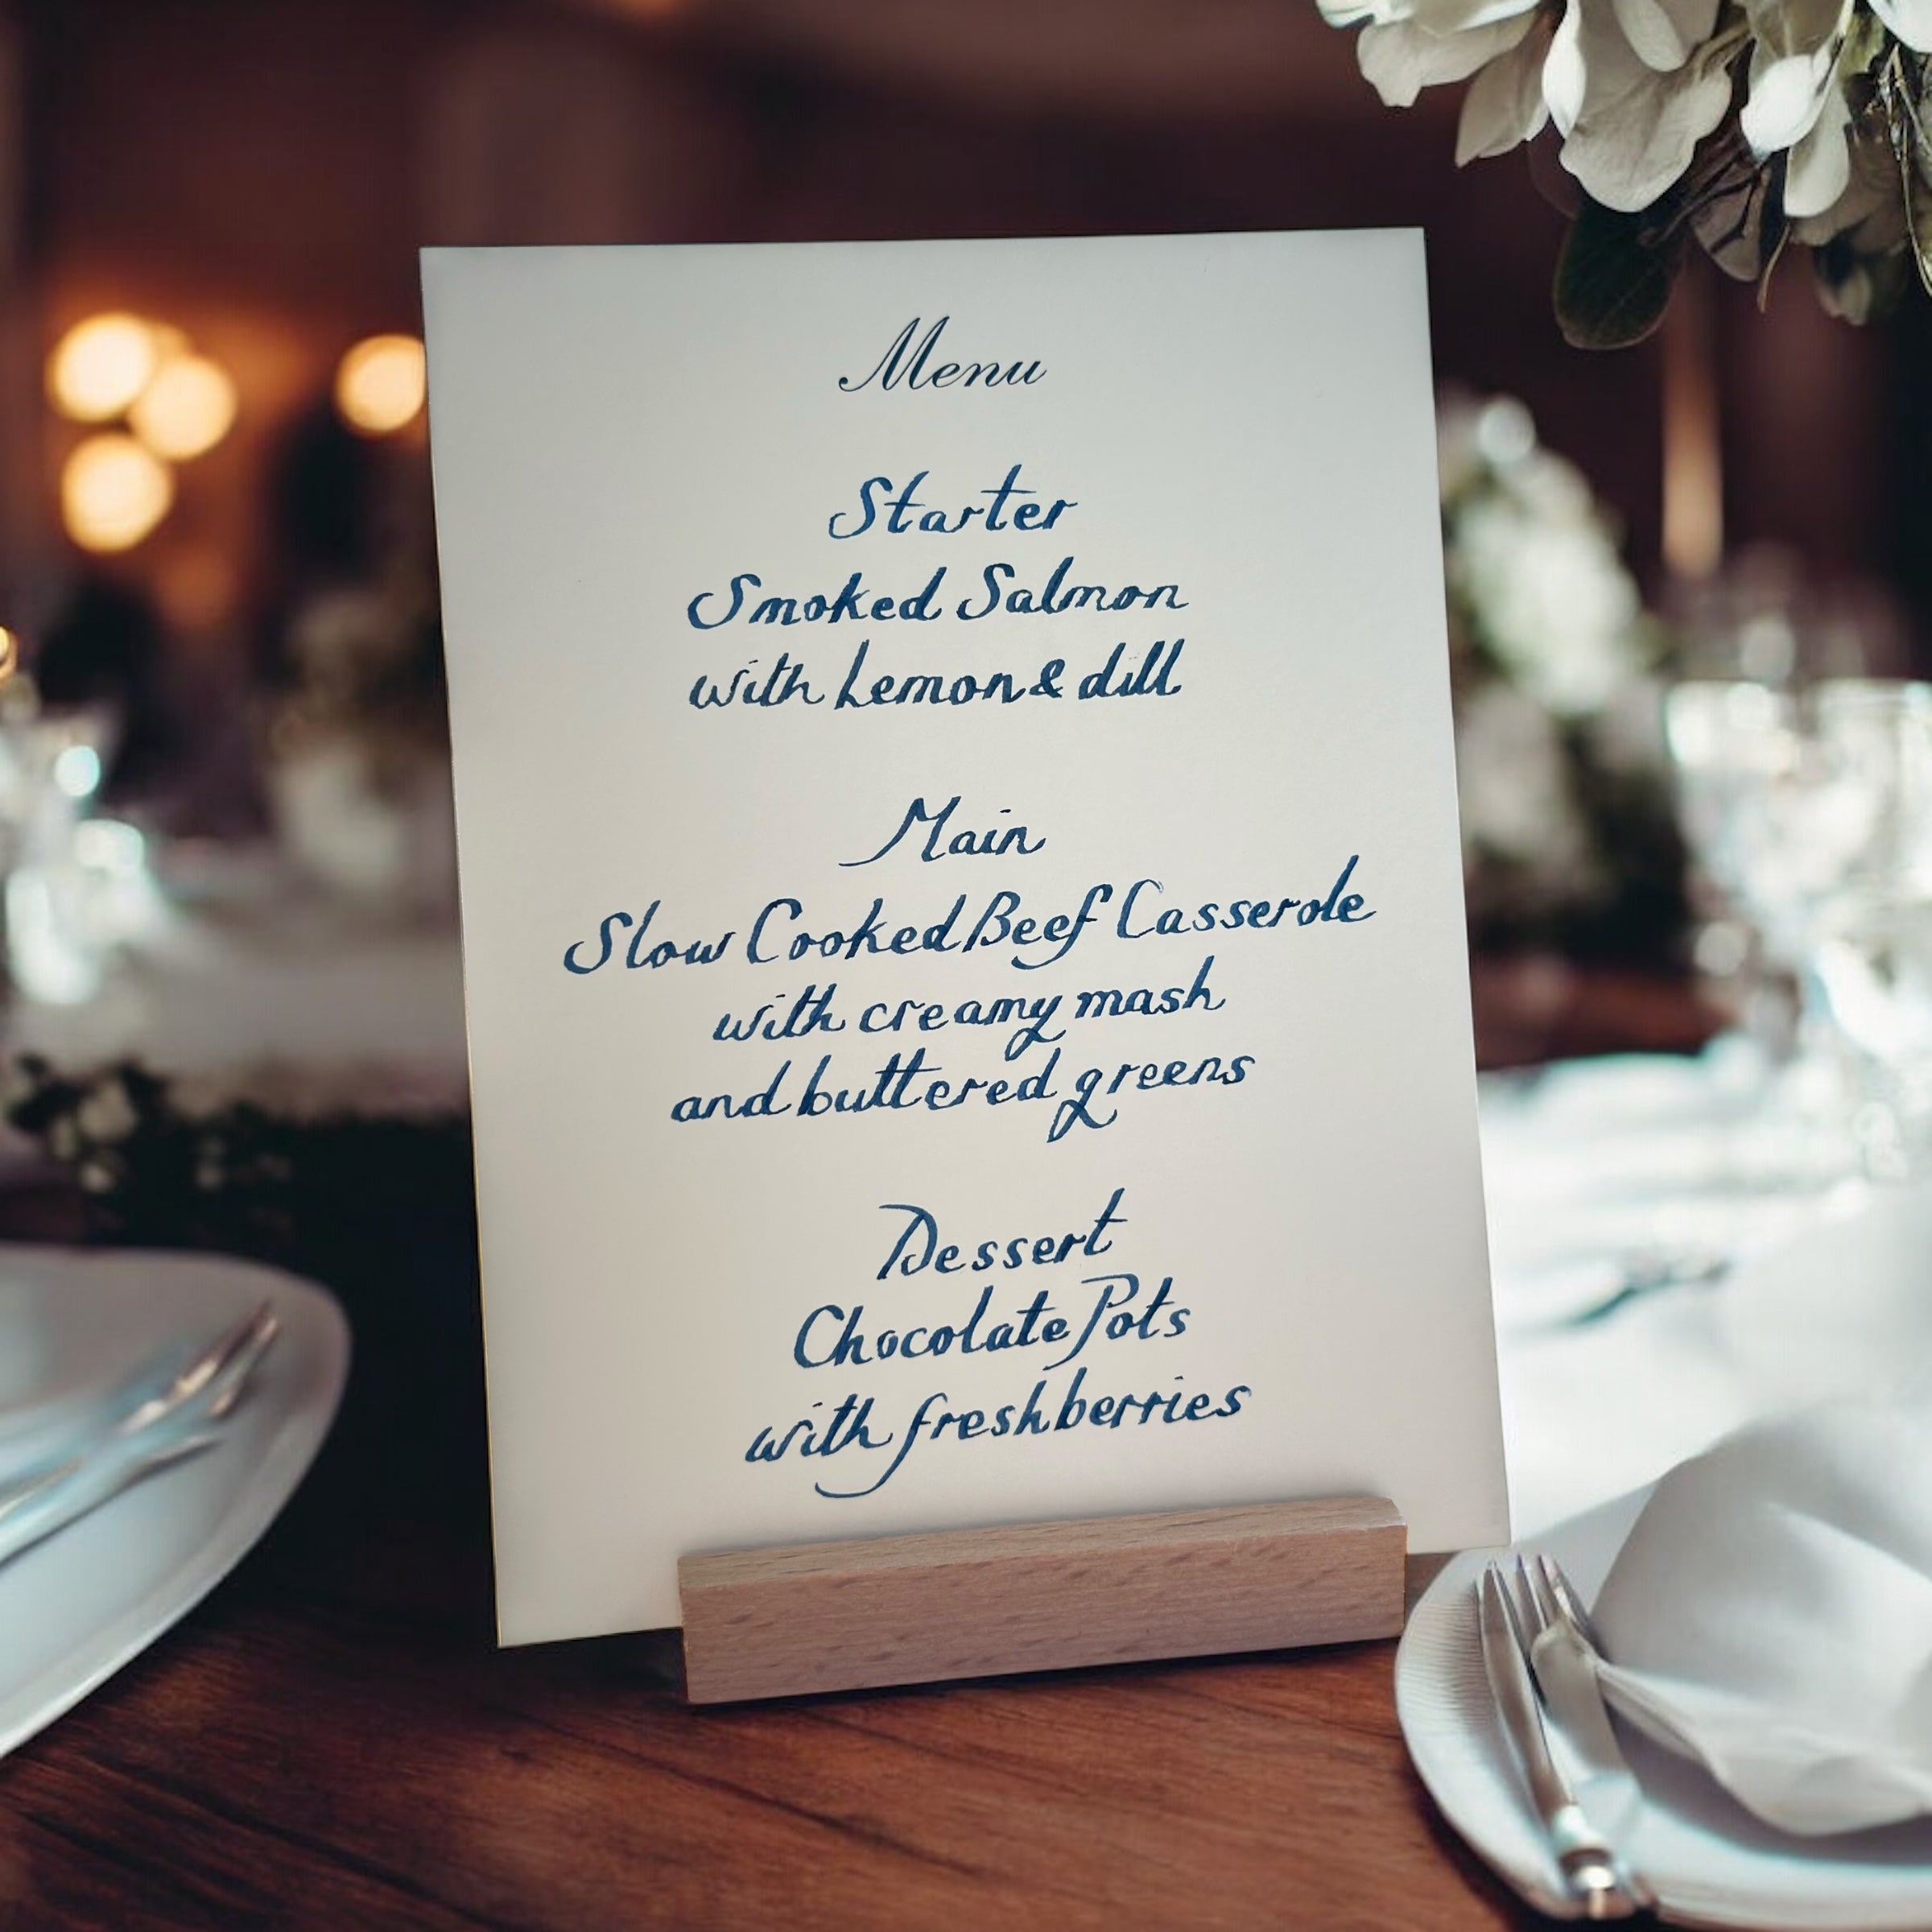 Menu
Starter
Smoked Salmon
with Lemon & dill
Main
Slow Cooked Beef Casserole
with creamy mash
and buttered greens
Dessert
Chocolate Pots
with fresh berries